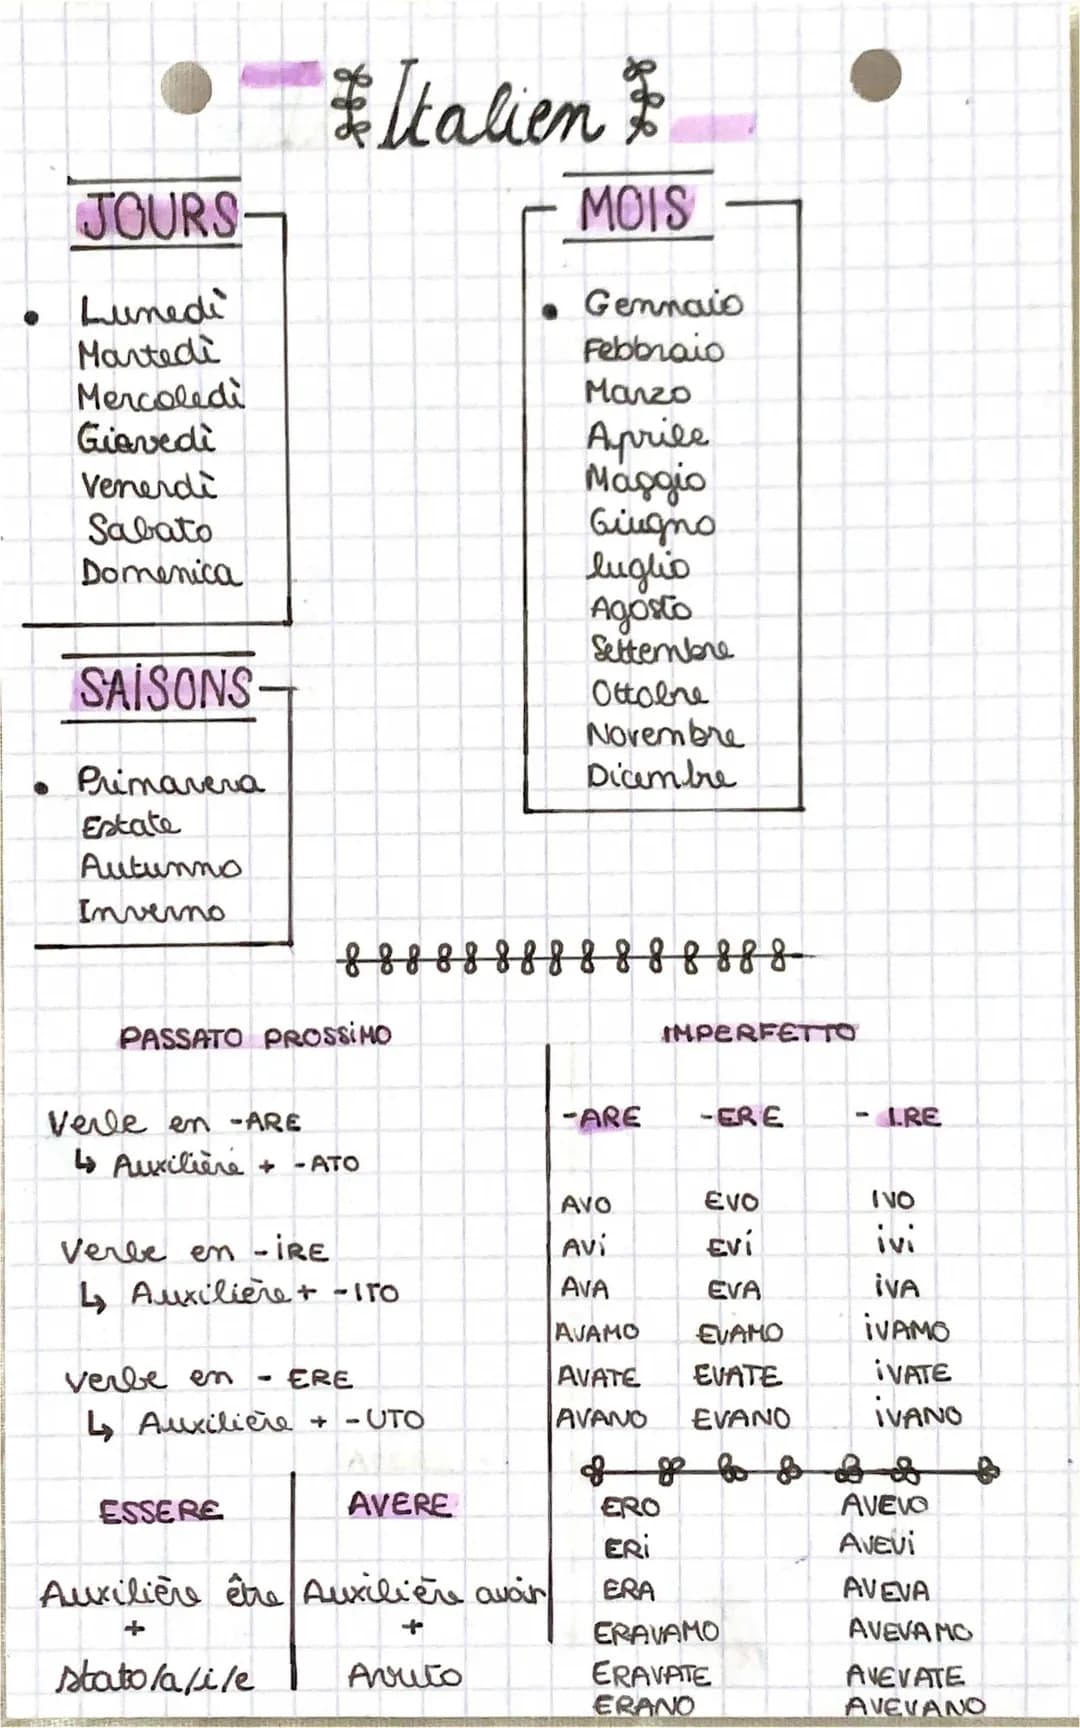 Italien
JOURS
Lunedì
Martedì
Mercoledì
Giovedì
Venerdì
Sabato
Domenica
SAISONS
Primavera
Estate
Autunno
Inverno
MOIS
Gennaio
Febbraio
Marzo
Aprile
Maggio
Giugno
luglio
Agosto
Settembre
Ottobre
Novembre
Dicembre
PASSATO PROSSIMO
Verbe en -ARE
↳ Auxilière + -ATO
Verbe en -IRE
↳ Auxilière + -ITO
verbe en - ERE
↳ Auxilière + -UTO
ESSERE
Auxilière être
+
stato/a/i/e
AVERE
Auxilière avoir
+
Avuto
IMPERFETTO
-ARE -ERE - IRE
AVO EVO IVO
AVI EVI IVI
AVA EVA IVA
AVAMO EVAMO IVAMO
AVATE EVATE IVATE
AVANO EVANO IVANO
ERO AVEVO
ERI AVEVI
ERA AVEVA
ERAVAMO AVEVAMO
ERAVATE AVEVATE
ERANO AVEVANO